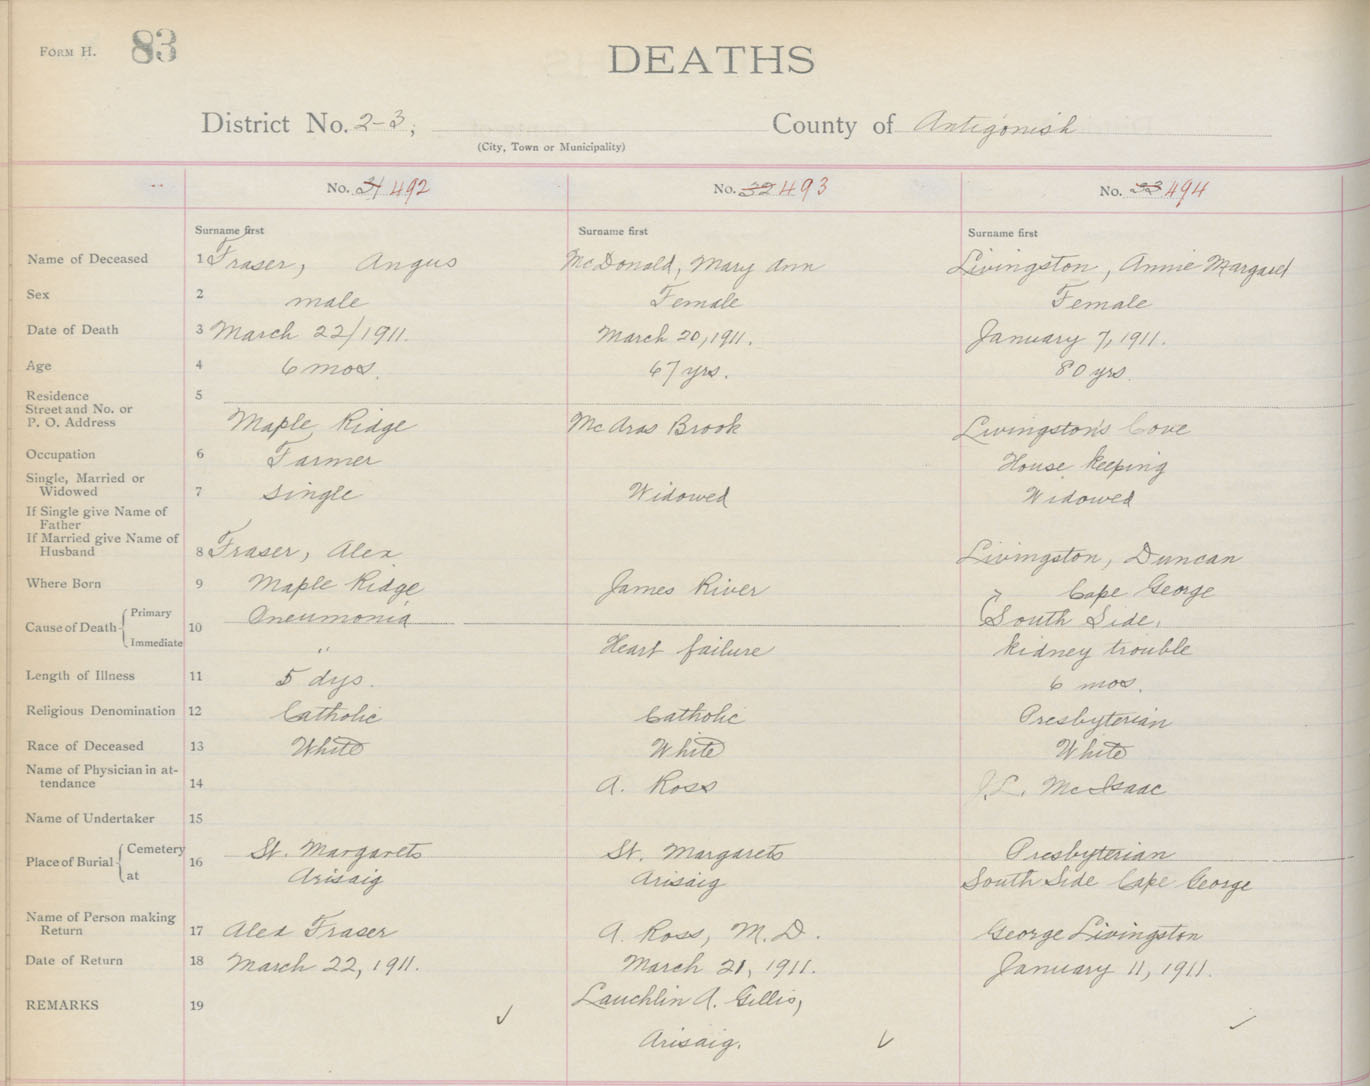 FORM H. 83
DEATHS
District No. 2-3, County of Antigonish
(City, Town or Municipality)
No. 31 492 No. 32 493 No. 33 494
Surname first Surname first Surname first
Name of Deceased 1 Fraser, Angus McDonald, Mary Ann Livingston, Annie Margaret
Sex 2 male Female Female
Date of Death 3 March 22/1911. March 20, 1911. January 7, 1911.
Age 4 6 mos. 67 yrs. 80 yrs.
Residence 5
Street and No. or
P. O. Address Maple Ridge McAras Brook Livingston's Cove
Occupation 6 Farmer House keeping
Single, Married or
Widowed 7 Single Widowed Widowed
If Single give Name of
Father
If Married give Name of
Husband 8 Fraser, Alex Livingston, Duncan
Where Born 9 Maple Ridge James River Cape George
Cause of Death Primary 10 Pneumonia South Side,
Immediate " Heart failure kidney trouble
Length of Illness 11 5 dys. 6 mos.
Religious Denomination 12 Catholic Catholic Presbyterian
Race of Deceased 13 White White White
Name of Physician in at-
tendance 14 A. Ross J.L. McIsaac
Name of Undertaker 15
Place of Burial Cemetery 16 St. Margarets St. Margarets Presbyterian
at Arisaig Arisaig South Side Cape George
Name of Person making
Return 17 Alex Fraser A. Ross, M.D. George Livingston
Date of Return 18 March 22, 1911. March 21, 1911. January 11, 1911.
REMARKS 19 Lauchlin A. Gillis,
Arisaig.